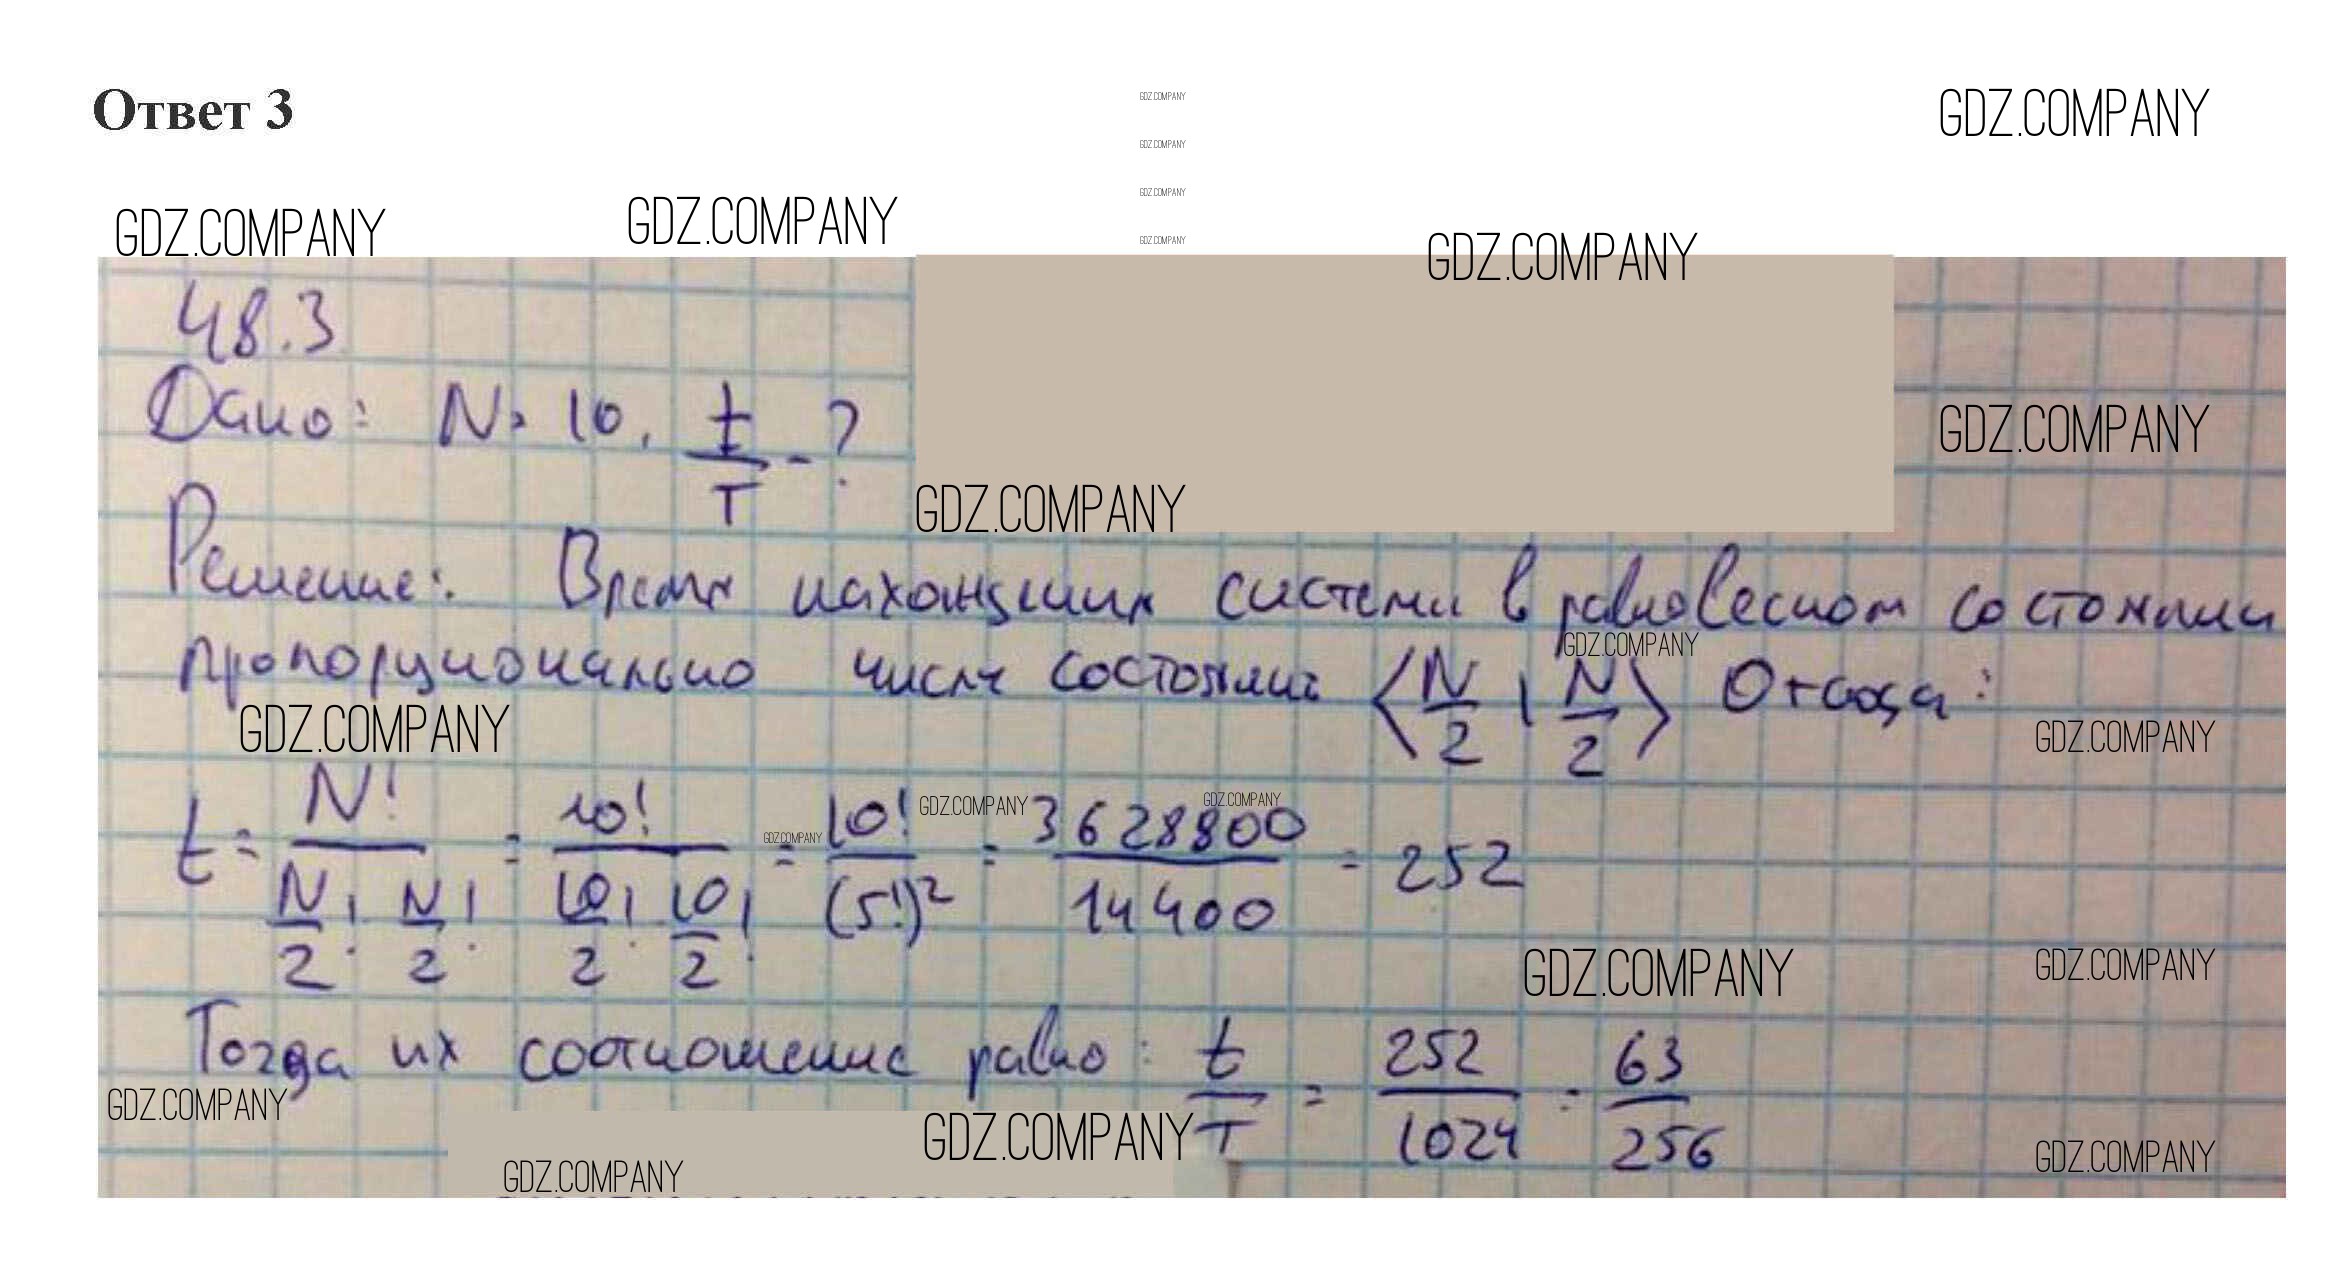 Ответ 3
GDZ.COMPANY
GDZ.COMPANY
GDZ.COMPANY
GDZ.COMPANY
GDZ.COMPANY
GDZ.COMPANY
GDZ.COMPANY
GDZ.COMPANY
GDZ.COMPANY
48.3
Дано: N = 10, t/T - ?
GDZ.COMPANY
GDZ.COMPANY
Решение: Время нахождения системы в равновесном состоянии
GDZ.COMPANY
пропорционально числу состояний ⟨N/2 | N/2⟩ Отсюда:
GDZ.COMPANY
GDZ.COMPANY
GDZ.COMPANY
GDZ.COMPANY
GDZ.COMPANY
t = N! / (N/2! N/2!) = 10! / (10/2! 10/2!) = 10! / (5!)² = 3628800 / 14400 = 252
GDZ.COMPANY
GDZ.COMPANY
Тогда их соотношение равно: t/T = 252/1024 = 63/256
GDZ.COMPANY
GDZ.COMPANY
GDZ.COMPANY
GDZ.COMPANY